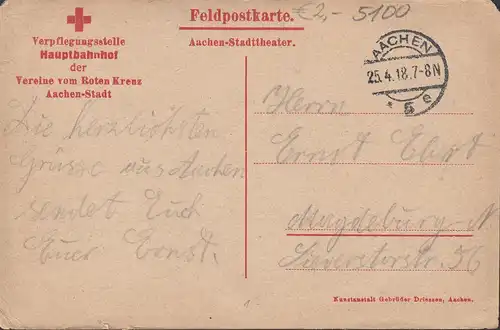 Feldpostkarte.
€2,- 5100
Verpflegungsstelle
Hauptbahnhof
der
Vereine vom Roten Kreuz
Aachen-Stadt
Aachen-Stadttheater.
AACHEN
25.4.18.7-8N
* 5 e
Die herzlichsten
Grüsse aus Aachen
sendet Euch
Euer Ernst.
Herrn
Ernst
Magdeburg-N
56
Kunstanstalt Gebrüder Driessen, Aachen.